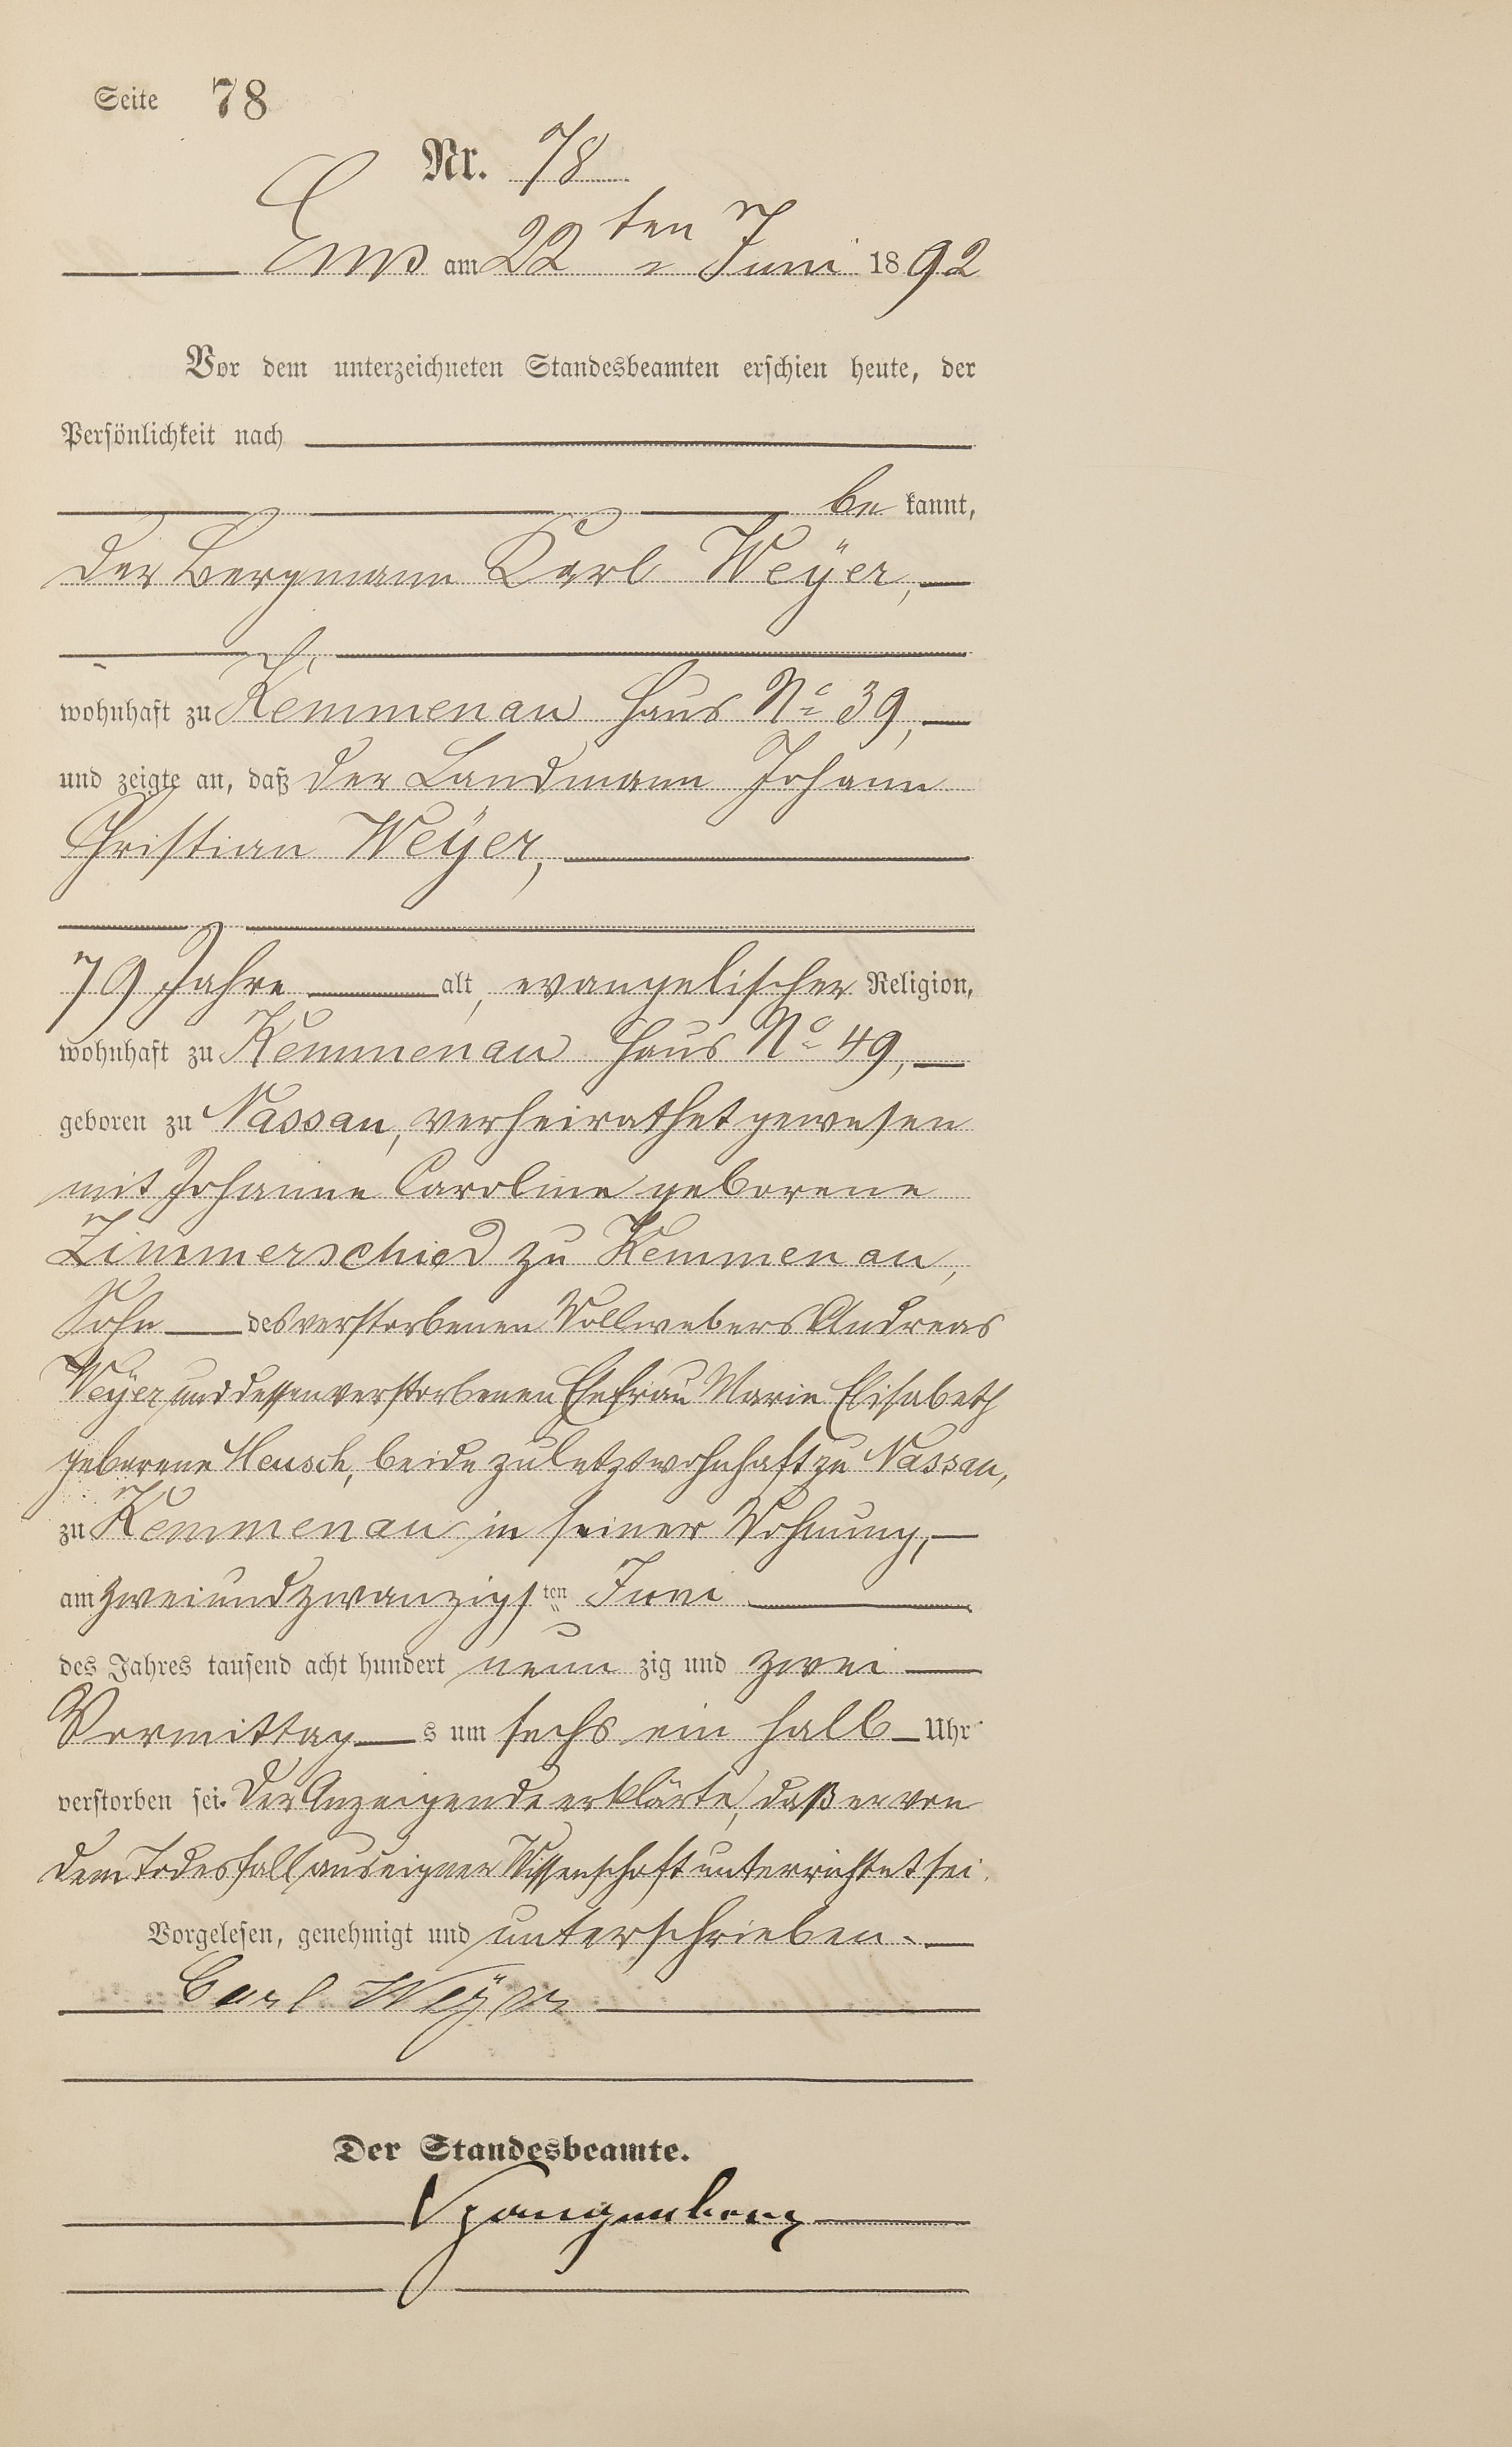 Seite 78
Nr. 78
Ems am 22ten Juni 1892
Vor dem unterzeichneten Standesbeamten erschien heute, der
Persönlichkeit nach
be kannt,
der Bergmann Karl Weÿer,
wohnhaft zu Kemmenau Haus No 39,
und zeigte an, daß der Landmann Johann
Christian Weÿer,
79 Jahre alt, evangelischer Religion,
wohnhaft zu Kemmenau Haus No 49,
geboren zu Nassau, verheirathet gewesen
mit Johanne Caroline geborene
Zimmerschied zu Kemmenau,
Sohn des verstorbenen Wollwebers Andreas
Weÿer und dessen verstorbenen Ehefrau Marie Elisabeth
geborene Heusch, beide zuletzt wohnhaft zu Nassau,
zu Kemmenau in seiner Wohnung,
am zweiundzwanzigsten Juni
des Jahres tausend acht hundert neun zig und zwei
Vormittag s um sechs ein halb Uhr
verstorben sei. Der Anzeigende erklärte, daß er von
dem Todesfall aus eigner Wissenschaft unterrichtet sei.
Vorgelesen, genehmigt und unterschrieben.
Carl Weÿer
Der Standesbeamte.
Spangenberg